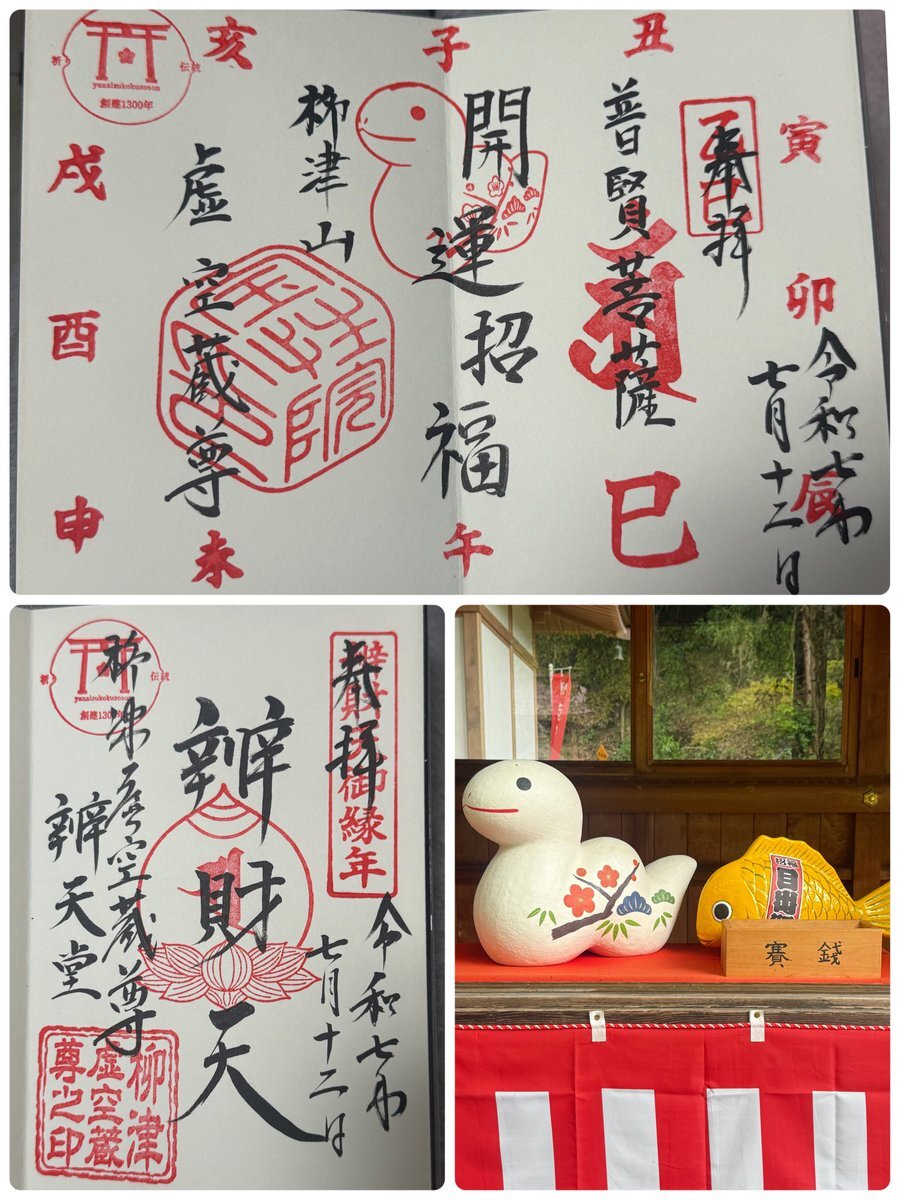 奉拝
令和七年
七月十二日
普賢菩薩
開運招福
柳津山
虚空蔵尊
亥
子
丑
寅
卯
辰
巳
午
未
申
酉
戌
祈
伝統
yanaizukokuzoson
創建1300年
奉拝
辯財天御縁年
令和七年
七月十二日
辨財天
柳津虚空蔵尊
辨天堂
祈
伝統
yanaizukokuzoson
創建1300年
柳津
虚空蔵
尊之印
招福
目出
賽銭